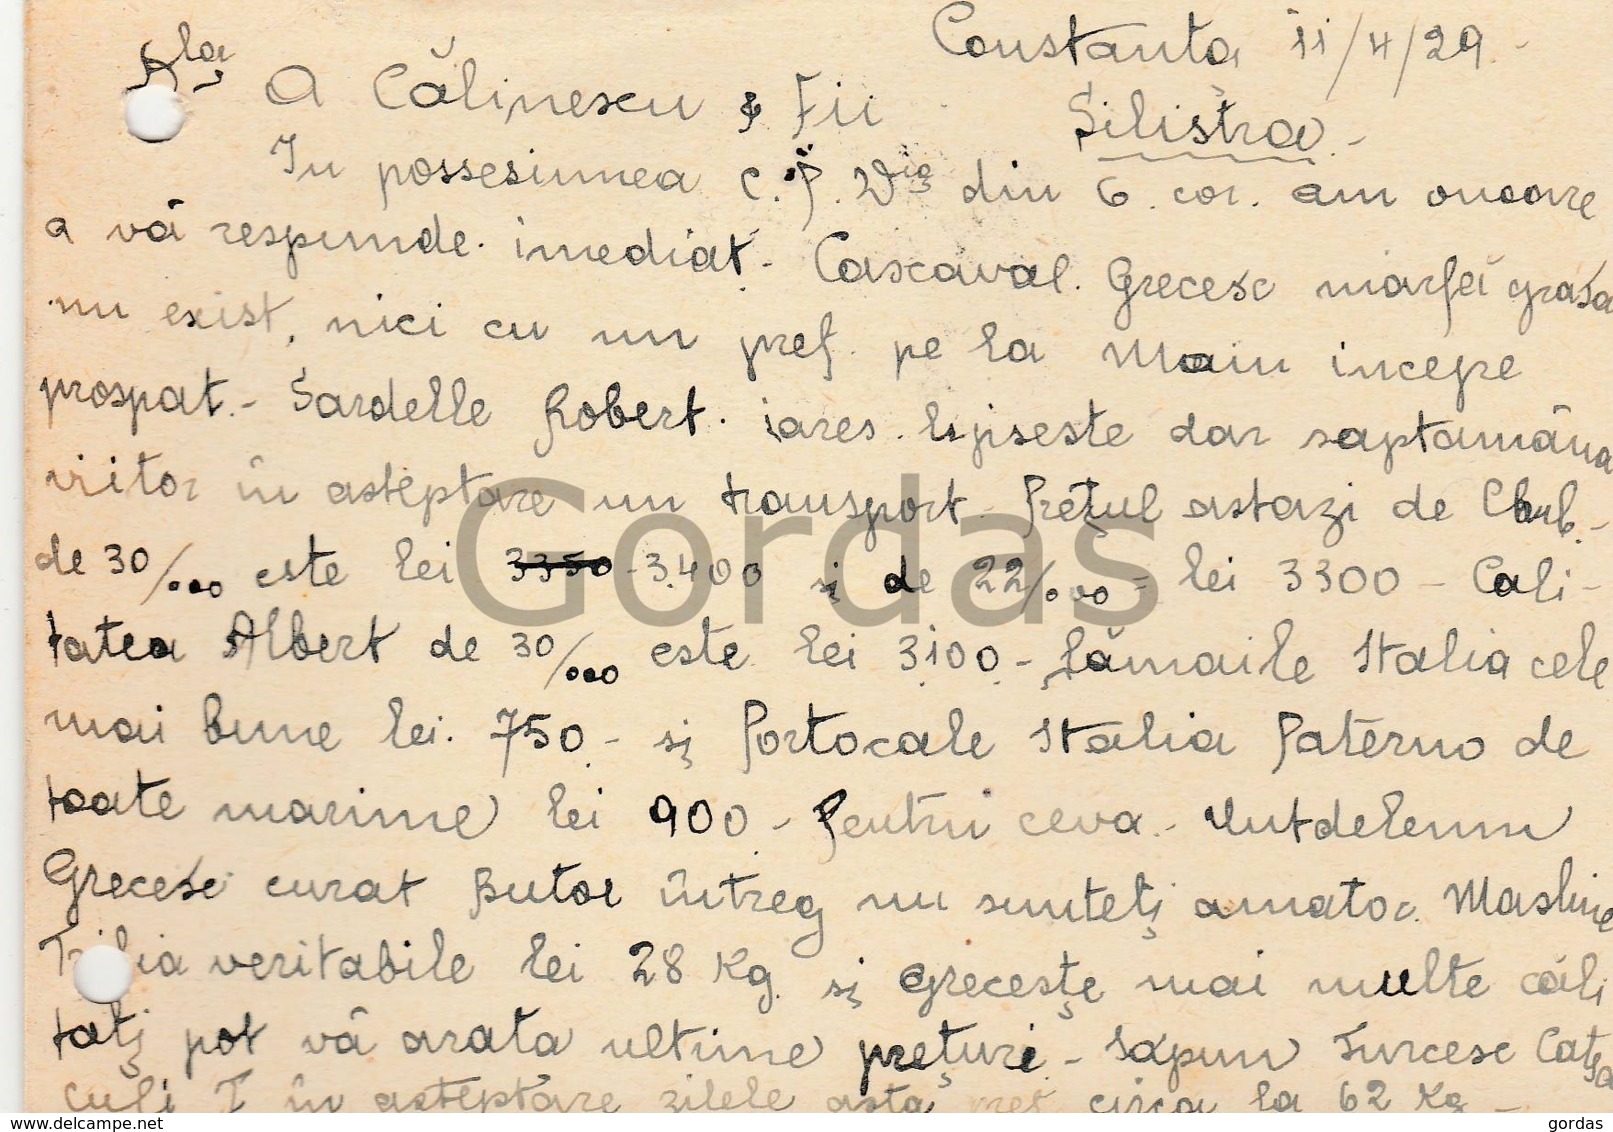 Constanta 11/4/29.
Dlor
A Călinescu & Fii Silistra.-
In possesiunea C. P. Dvs din 6. cor. am onoare
a vă respunde. imediat.- Cascaval. Grecesc marfă grasa
nu exist, nici cu un preț. pe la Maiu incepe
prospat.- Sardelle Robert. iares. lipseste dar saptamâna
viitor în asteptare un transport.- Prețul astazi de Club.-
de 30/000 este lei 3350 - 3.400 și de 22/000 = lei 3300 - Cali-
tatea Albert de 30/000 este lei 3100 - Lămaile Italia cele
mai bune lei. 750.- și Portocale Italia Paterno de
toate marime lei 900.- Pentru ceva.- Untdelemn
Grecesc curat Butoi întreg nu sunteți amator. Masline
veritabile lei 28 Kg. și Greceste mai multe căli
tatį pot vă arata ultime prețuri.- Sapun Turcesc
în asteptare zilele asta preț circa la 62 Kg -
Gordas
delcampe.net
gordas